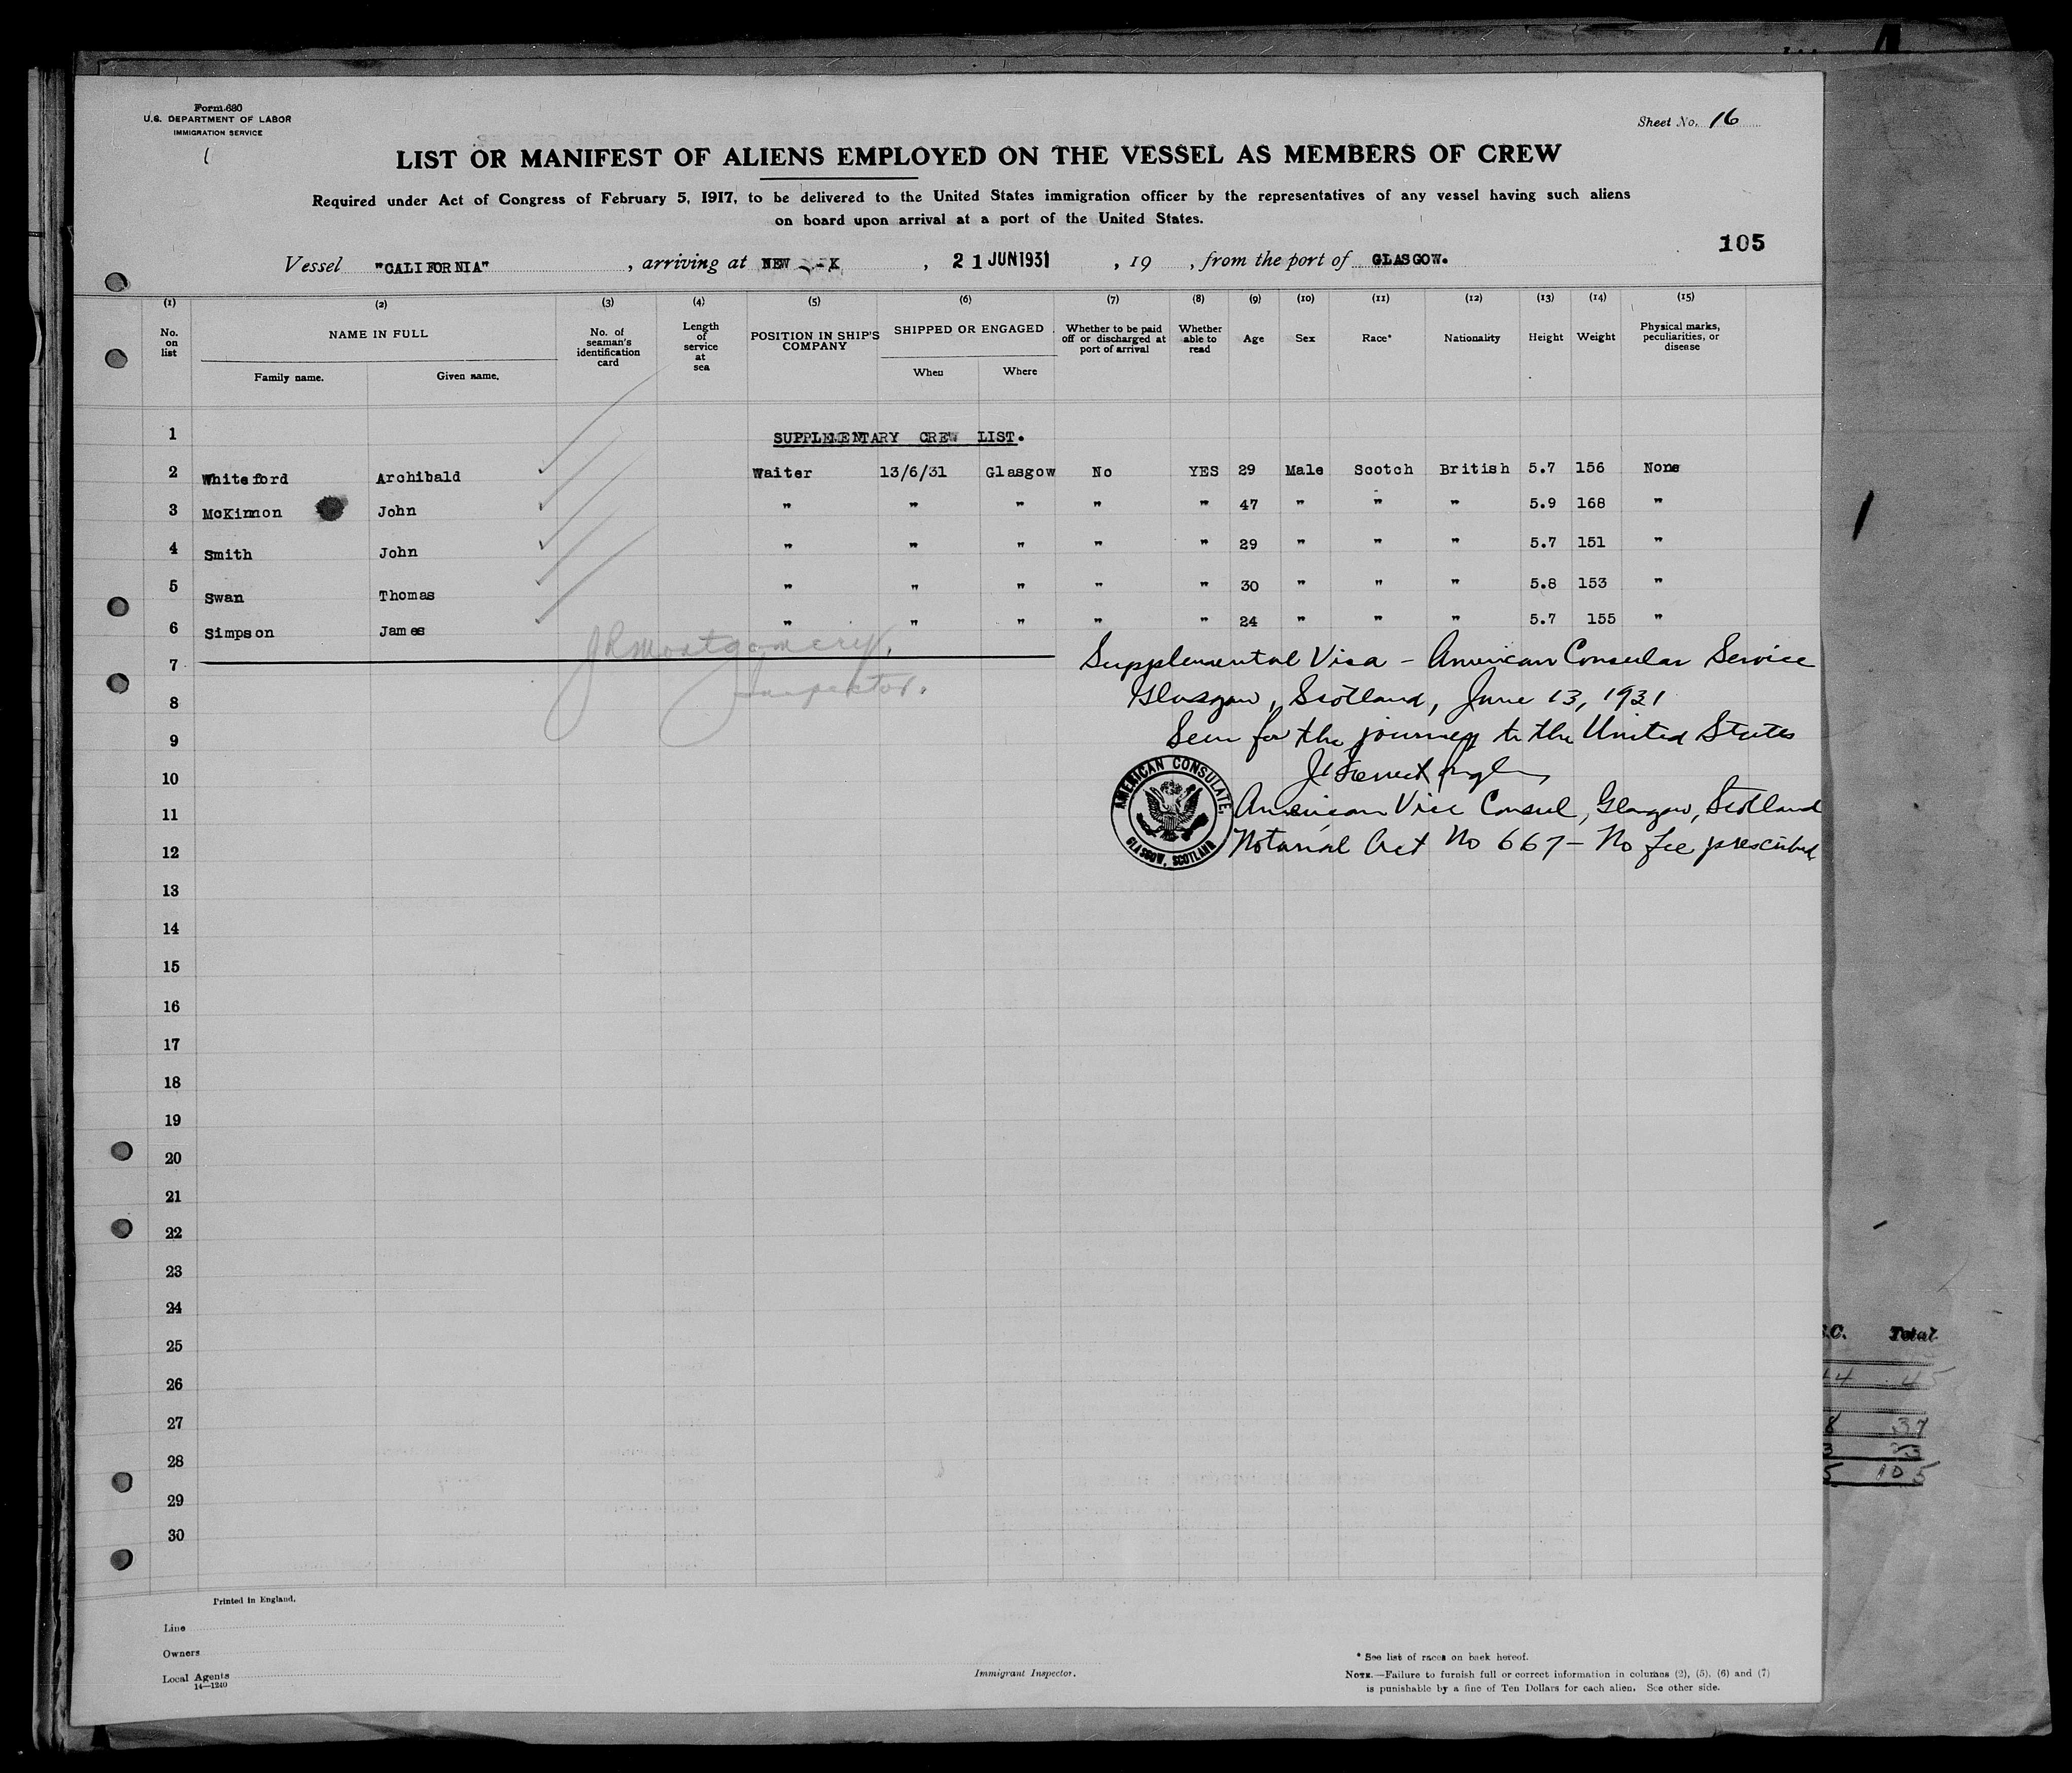 Form 680
U.S. DEPARTMENT OF LABOR
IMMIGRATION SERVICE
Sheet No. 16
LIST OR MANIFEST OF ALIENS EMPLOYED ON THE VESSEL AS MEMBERS OF CREW
Required under Act of Congress of February 5, 1917, to be delivered to the United States immigration officer by the representatives of any vessel having such aliens
on board upon arrival at a port of the United States.
105
Vessel "CALIFORNIA" , arriving at NEW K , 21 JUN 1931 , 19 , from the port of GLASGOW.
(1) (2) (3) (4) (5) (6) (7) (8) (9) (10) (11) (12) (13) (14) (15)
No. on list NAME IN FULL Family name. Given name. No. of seaman's identification card Length of service at sea POSITION IN SHIP'S COMPANY SHIPPED OR ENGAGED When Where Whether to be paid off or discharged at port of arrival Whether able to read Age Sex Race* Nationality Height Weight Physical marks, peculiarities, or disease
1 SUPPLEMENTARY CREW LIST.
2 Whiteford Archibald Waiter 13/6/31 Glasgow No YES 29 Male Scotch British 5.7 156 None
3 McKinnon John " " " " " 47 " " " 5.9 168 "
4 Smith John " " " " " 29 " " " 5.7 151 "
5 Swan Thomas " " " " " 30 " " " 5.8 153 "
6 Simpson James " " " " " 24 " " " 5.7 155 "
J R Montgomery,
Inspector.
7 Supplemental Visa - American Consular Service
8 Glasgow, Scotland, June 13, 1931
9 Seen for the journey to the United States
10
AMERICAN CONSULATE, GLASGOW, SCOTLAND
11 American Vice Consul, Glasgow, Scotland
12 Notarial Act No 667 - No fee prescribed
13
14
15
16
17
18
19
20
21
22
23
24
25
26
27
28
29
30
.C. Total
14 45
8 37
3 23
5 105
Printed in England.
Line
Owners
Local Agents
14—1240
Immigrant Inspector.
* See list of races on back hereof.
NOTE.—Failure to furnish full or correct information in columns (2), (5), (6) and (7)
is punishable by a fine of Ten Dollars for each alien. See other side.